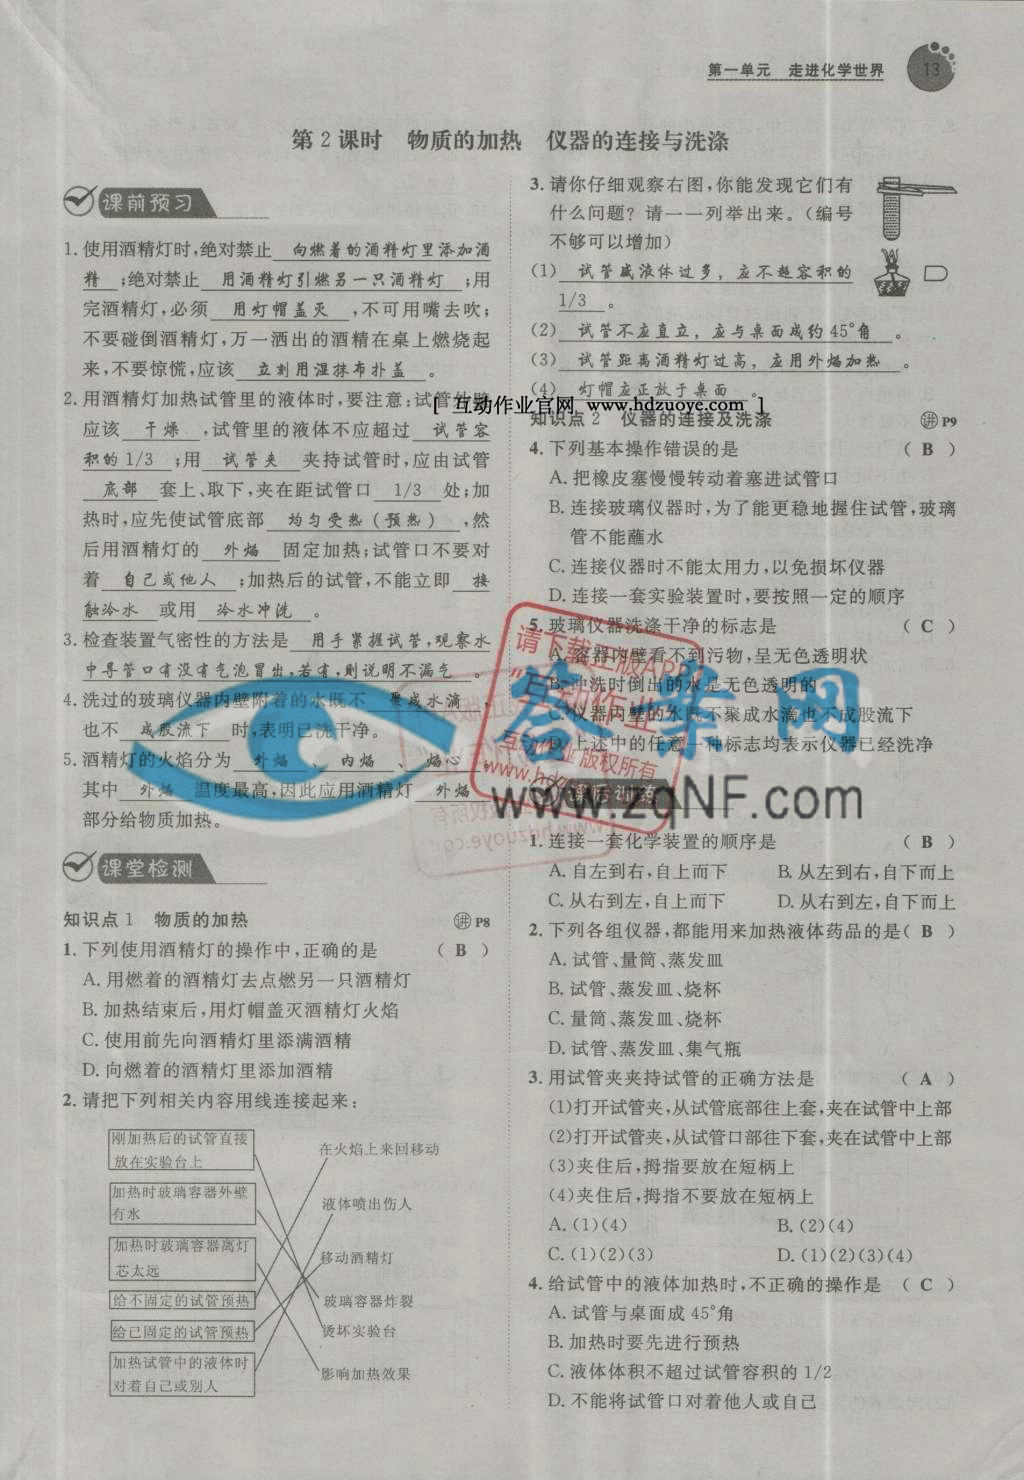 第一单元 走进化学世界
13
第2课时 物质的加热 仪器的连接与洗涤
课前预习
1.使用酒精灯时,绝对禁止 向燃着的酒精灯里添加酒
精 ;绝对禁止 用酒精灯引燃另一只酒精灯 ;用
完酒精灯,必须 用灯帽盖灭 ,不可用嘴去吹;
不要碰倒酒精灯,万一洒出的酒精在桌上燃烧起
来,不要惊慌,应该 立刻用湿抹布扑盖 。
2.用酒精灯加热试管里的液体时,要注意:试管外壁
应该 干燥 ,试管里的液体不应超过 试管容
积的1/3 ;用 试管夹 夹持试管时,应由试管
底部 套上、取下,夹在距试管口 1/3 处;加
热时,应先使试管底部 均匀受热(预热) ,然
后用酒精灯的 外焰 固定加热;试管口不要对
着 自己或他人 ;加热后的试管,不能立即 接
触冷水 或用 冷水冲洗 。
3.检查装置气密性的方法是 用手紧握试管,观察水
中导管口有没有气泡冒出,若有,则说明不漏气 。
4.洗过的玻璃仪器内壁附着的水既不 聚成水滴 ,
也不 成股流下 时,表明已洗干净。
5.酒精灯的火焰分为 外焰 、 内焰 、 焰心 ,
其中 外焰 温度最高,因此应用酒精灯 外焰
部分给物质加热。
课堂检测
知识点1 物质的加热 讲 P8
1.下列使用酒精灯的操作中,正确的是 ( B )
A.用燃着的酒精灯去点燃另一只酒精灯
B.加热结束后,用灯帽盖灭酒精灯火焰
C.使用前先向酒精灯里添满酒精
D.向燃着的酒精灯里添加酒精
2.请把下列相关内容用线连接起来:
刚加热后的试管直接
放在实验台上
加热时玻璃容器外壁
有水
加热时玻璃容器离灯
芯太远
给不固定的试管预热
给已固定的试管预热
加热试管中的液体时
对着自己或别人
在火焰上来回移动
液体喷出伤人
移动酒精灯
玻璃容器炸裂
烫坏实验台
影响加热效果
3.请你仔细观察右图,你能发现它们有
什么问题？请一一列举出来。(编号
不够可以增加)
(1) 试管盛液体过多，应不超容积的
1/3 。
(2) 试管不应直立，应与桌面成约45°角 。
(3) 试管距离酒精灯过高，应用外焰加热 。
(4) 灯帽应正放于桌面 。
[ 互动作业官网 www.hdzuoye.com ]
知识点2 仪器的连接及洗涤 讲 P9
4.下列基本操作错误的是 ( B )
A.把橡皮塞慢慢转动着塞进试管口
B.连接玻璃仪器时,为了能更稳地握住试管,玻璃
管不能蘸水
C.连接仪器时不能太用力,以免损坏仪器
D.连接一套实验装置时,要按照一定的顺序
5.玻璃仪器洗涤干净的标志是 ( C )
A.容器内壁看不到污物,呈无色透明状
B.冲洗时倒出的水是无色透明的
C.仪器内壁的水既不聚成水滴也不成股流下
D.上述中的任意一种标志均表示仪器已经洗净
请下载正版APP
“互动作业”
互动作业 版权所有
www.hdzuoye.com
答案网
www.zqNF.com
1.连接一套化学装置的顺序是 ( B )
A.自左到右,自上而下 B.从左到右,自下而上
C.从右到左,自上而下 D.从右到左,自下而上
2.下列各组仪器,都能用来加热液体药品的是( B )
A.试管、量筒、蒸发皿
B.试管、蒸发皿、烧杯
C.量筒、蒸发皿、烧杯
D.试管、蒸发皿、集气瓶
3.用试管夹夹持试管的正确方法是 ( A )
(1)打开试管夹,从试管底部往上套,夹在试管中上部
(2)打开试管夹,从试管口部往下套,夹在试管中上部
(3)夹住后,拇指要放在短柄上
(4)夹住后,拇指不要放在短柄上
A.(1)(4) B.(2)(4)
C.(1)(2)(3) D.(1)(2)(3)(4)
4.给试管中的液体加热时,不正确的操作是 ( C )
A.试管与桌面成45°角
B.加热时要先进行预热
C.液体体积不超过试管容积的1/2
D.不能将试管口对着他人或自己